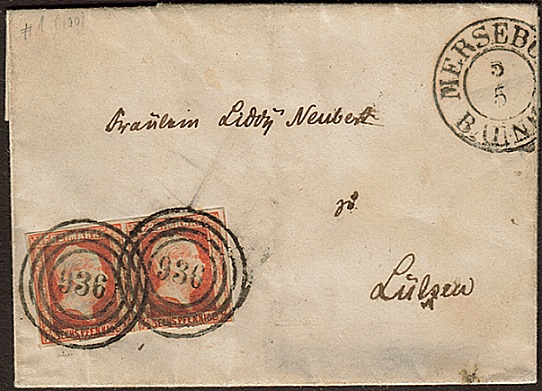 #1 (100)
MERSEBU
5
5
BAHNH
Fräulein Liddy Neubert
zu
Lützen
FREIMARKE FREIMARKE
936 936
SECHS PFENNIGE SECHS PFENNIGE